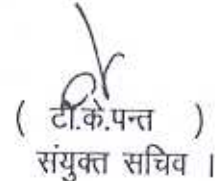 ( टी.के.पन्त )
संयुक्त सचिव ।